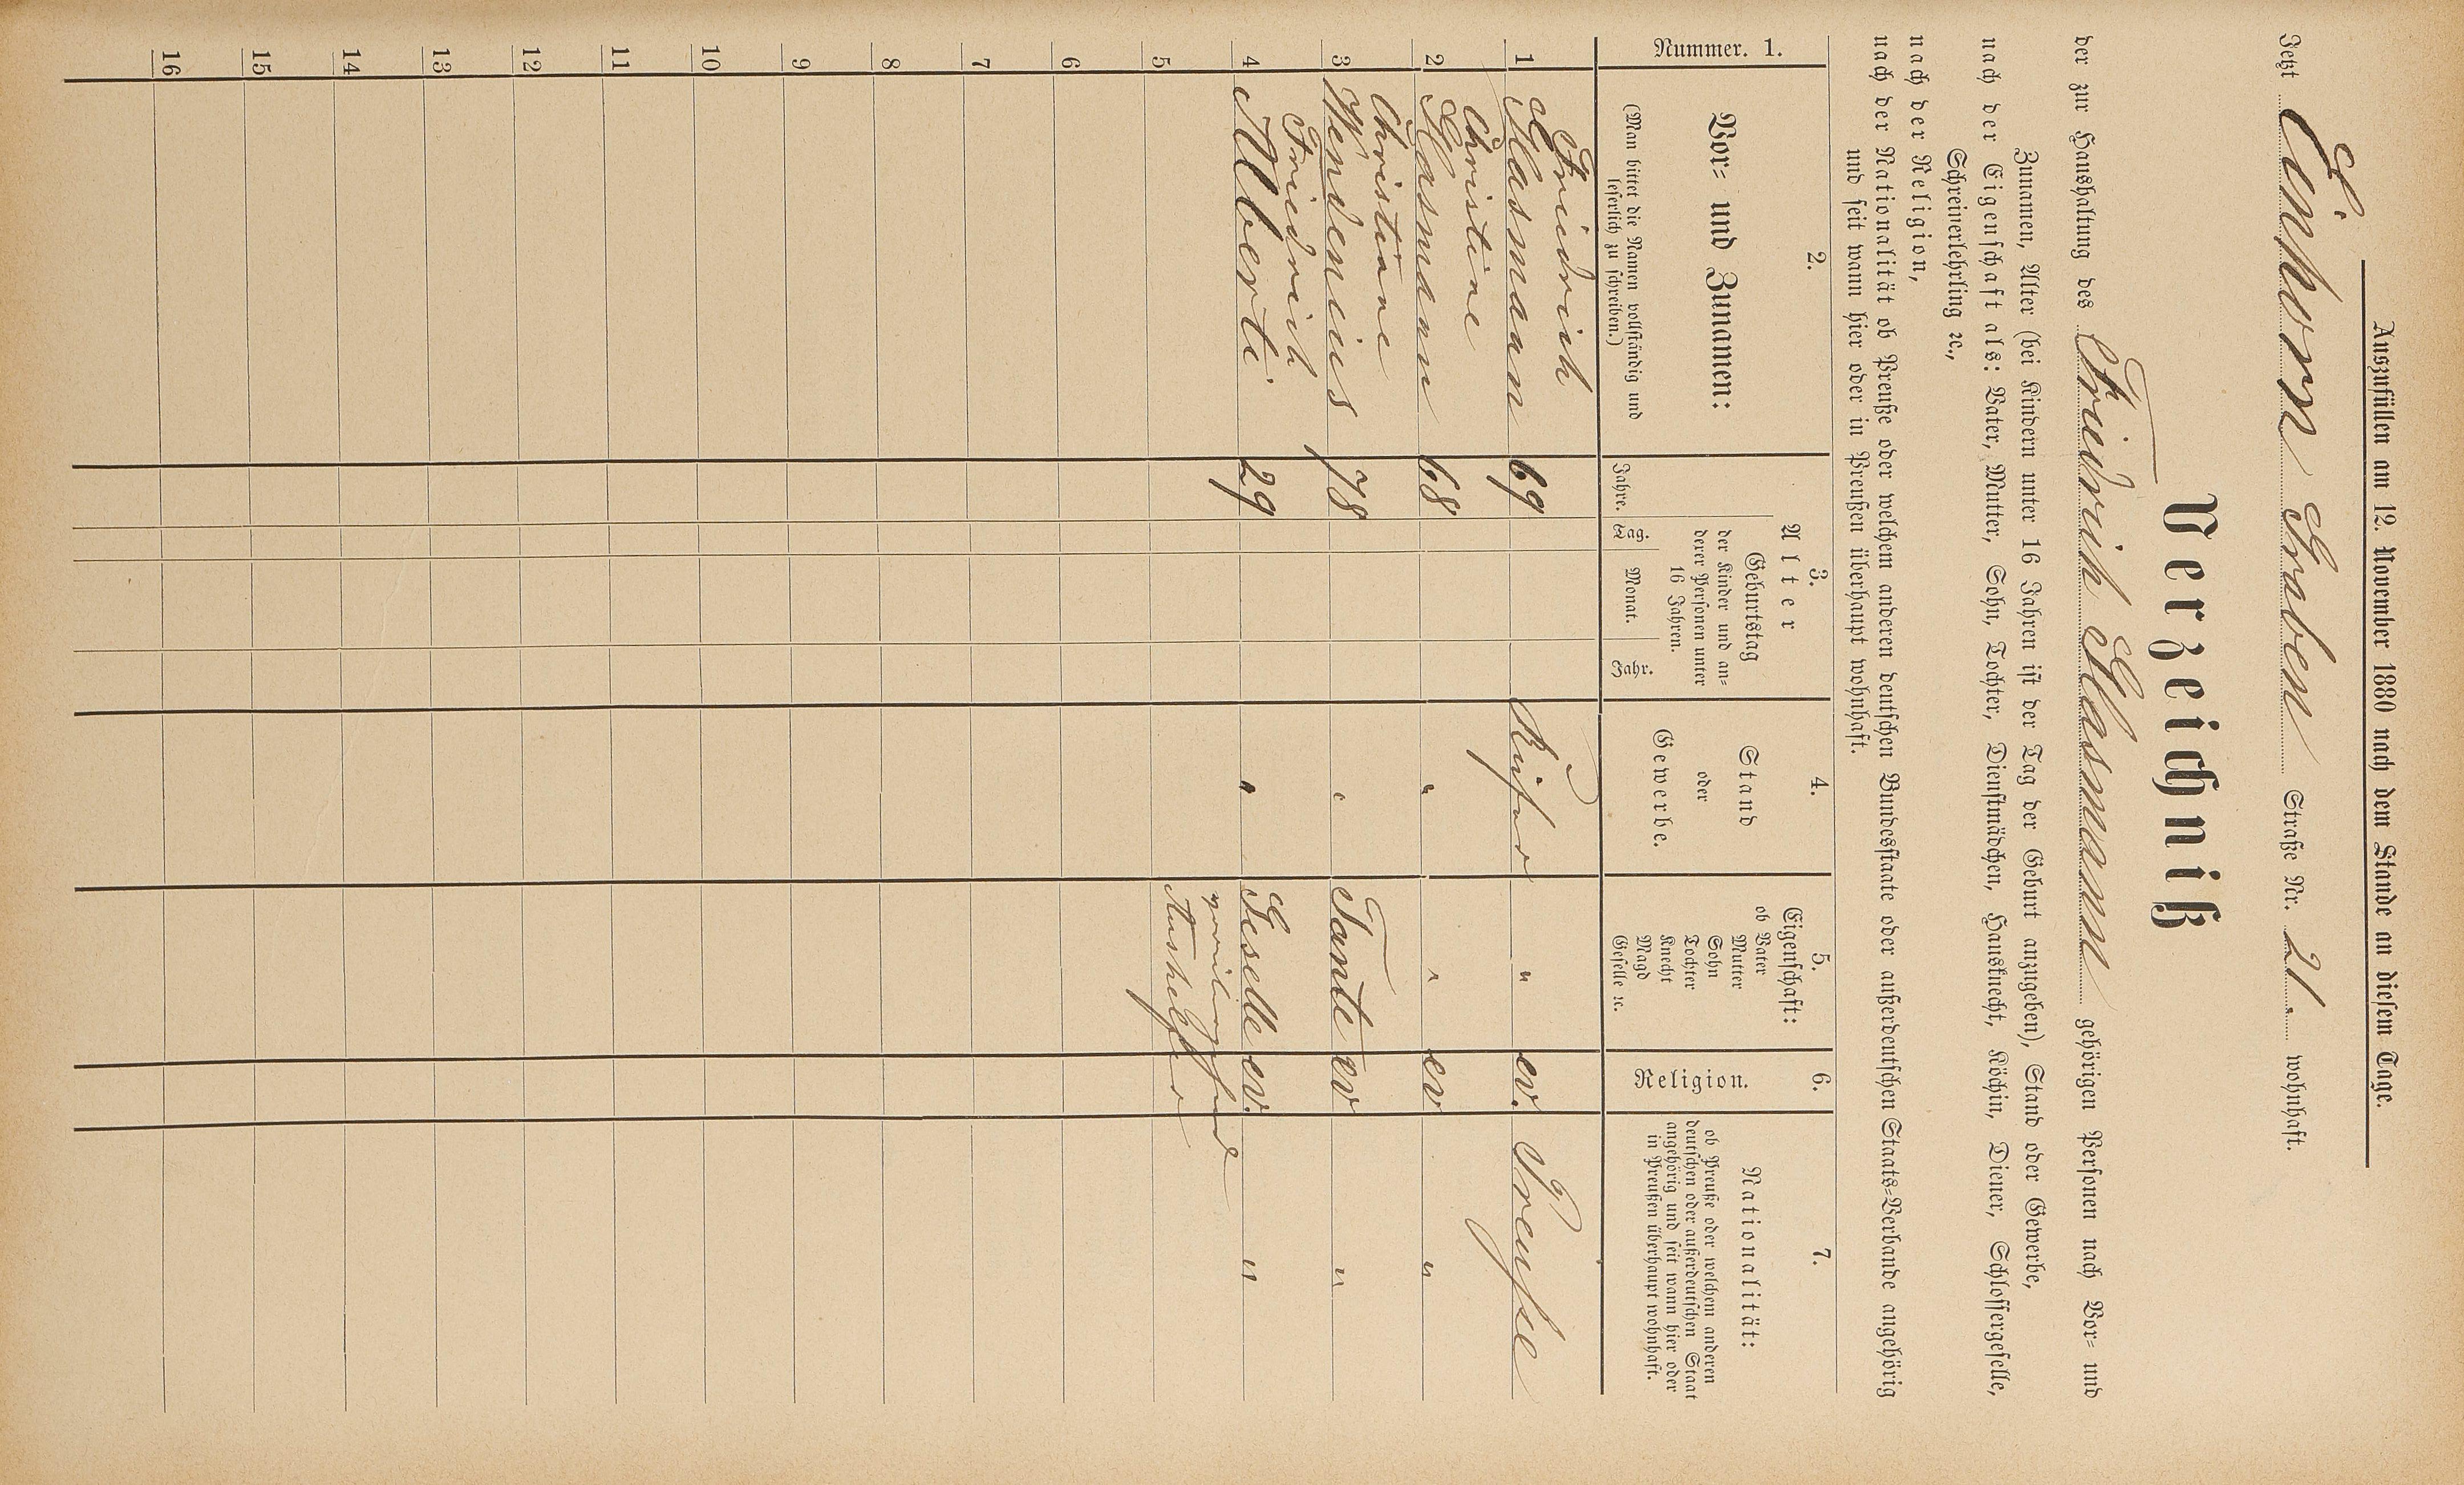 Auszufüllen am 12. November 1880 nach dem Stande an diesem Tage.
Jetzt Einhorn Graben Straße Nr. 21. wohnhaft.
Verzeichniß
der zur Haushaltung des Friedrich Glasmann gehörigen Personen nach Vor- und
Zunamen, Alter (bei Kindern unter 16 Jahren ist der Tag der Geburt anzugeben), Stand oder Gewerbe,
nach der Eigenschaft als: Vater, Mutter, Sohn, Tochter, Dienstmädchen, Hausknecht, Köchin, Diener, Schlossergeselle,
Schreinerlehrling ꝛc.,
nach der Religion,
nach der Nationalität ob Preuße oder welchem anderen deutschen Bundesstaate oder außerdeutschen Staats-Verbande angehörig
und seit wann hier oder in Preußen überhaupt wohnhaft.
Nummer. 1.
2.
Vor- und Zunamen:
(Man bittet die Namen vollständig und
leserlich zu schreiben.)
3.
Alter
Jahre.
Geburtstag
der Kinder und an-
derer Personen unter
16 Jahren.
Tag. Monat. Jahr.
4.
Stand
oder
Gewerbe.
5.
Eigenschaft:
ob Vater
Mutter
Sohn
Tochter
Knecht
Magd
Geselle ꝛc.
6.
Religion.
7.
Nationalität:
ob Preuße oder welchem anderen
deutschen oder außerdeutschen Staat
angehörig und seit wann hier oder
in Preußen überhaupt wohnhaft.
Friedrich
1 Glasmann 69 Küfer " ev. Preuße
Christine
2 Glasmann 68 " " ev "
Christiane
3 Wendenius 78 " Tante ev "
Friedrich
4 Alberti 29 " Geselle ev. "
5 Aushelfer
6
7
8
9
10
11
12
13
14
15
16